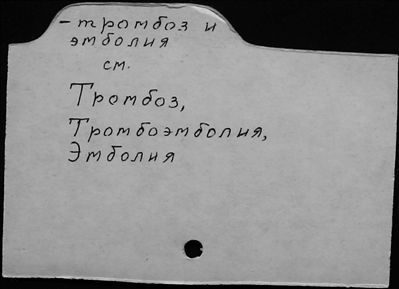 - тромбоз и
эмболия
см.
Тромбоз,
Тромбоэмболия,
Эмболия